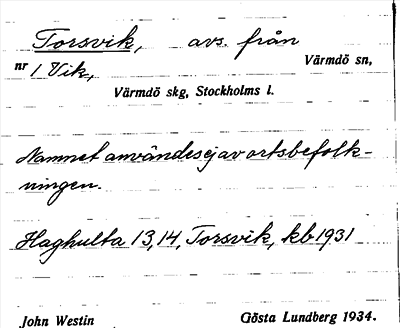 Torsvik, avs. från
nr 1 Vik, Värmdö sn,
Värmdö skg, Stockholms l.
Namnet användes ej av ortsbefolk-
ningen.
Haghulta 13,14, Torsvik, kb 1931
John Westin Gösta Lundberg 1934.